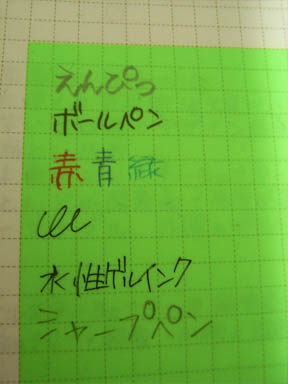 えんぴつ
ボールペン
赤 青 緑
水性ゲルインク
シャープペン